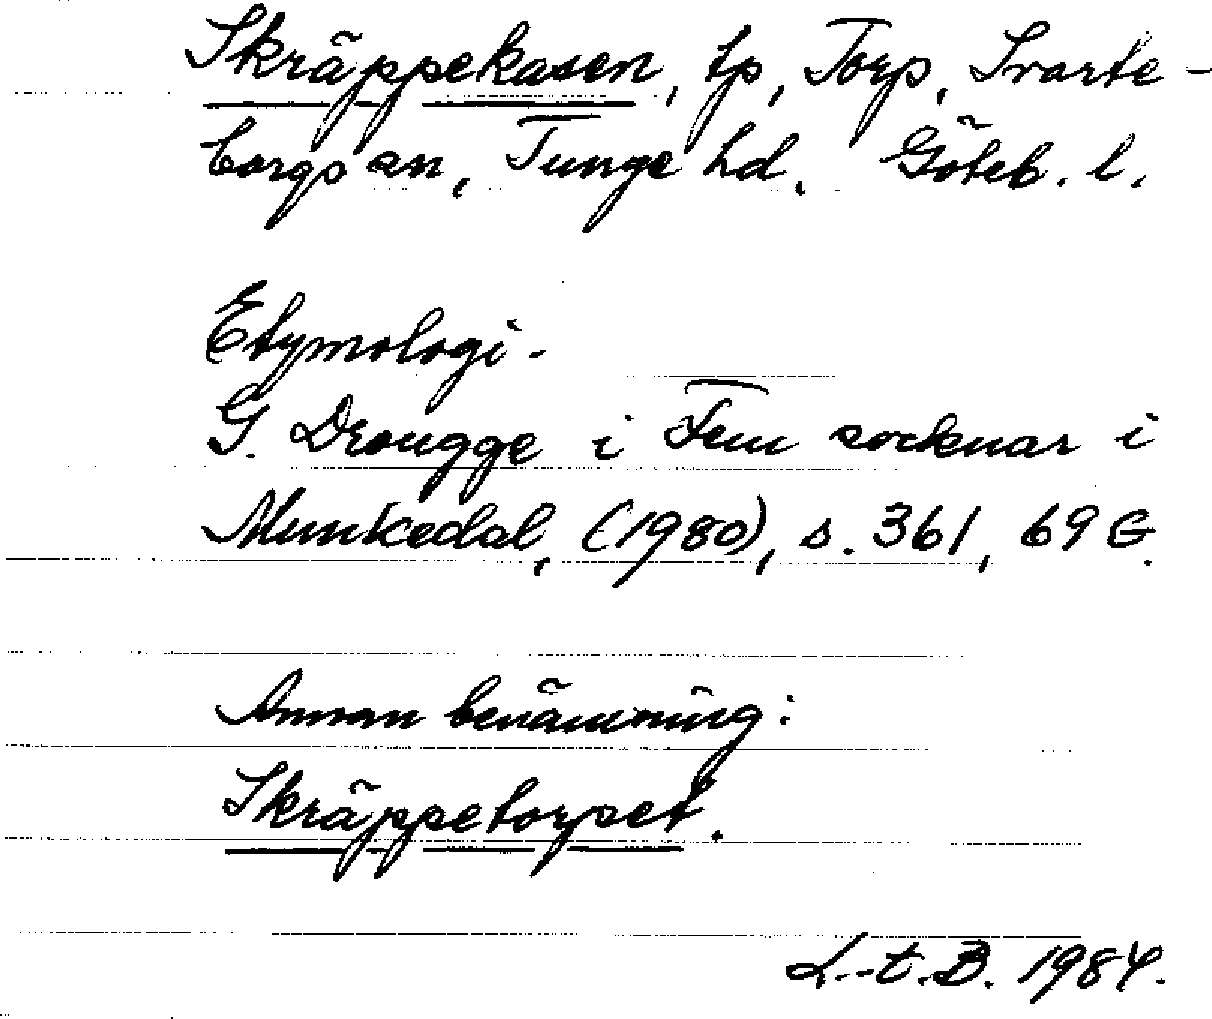 Skräppekasen, tp, Torp, Svarte-
borgs sn, Tunge hd. Göteb. l.
Etymologi.
G. Drougge i Fem socknar i
Munkedal, (1980), s. 361, 69 G.
Annan benämning:
Skräppetorpet.
L.-t. B. 1984.